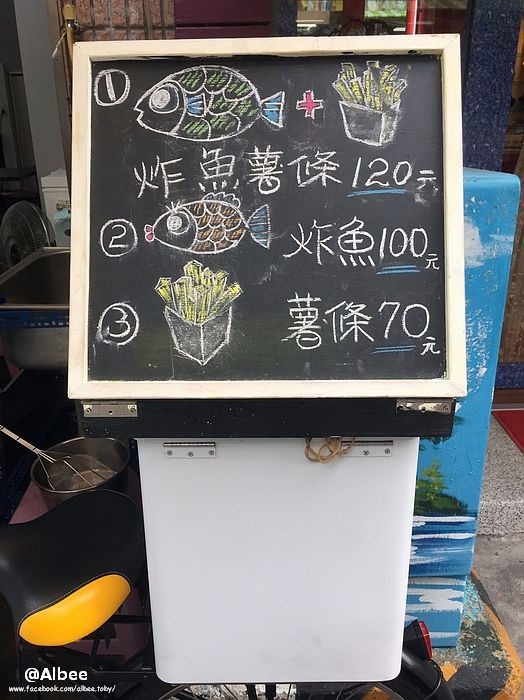 ① +
炸魚薯條120元
② 炸魚100元
③ 薯條70元
@Albee
www.facebook.com/albee.toby/